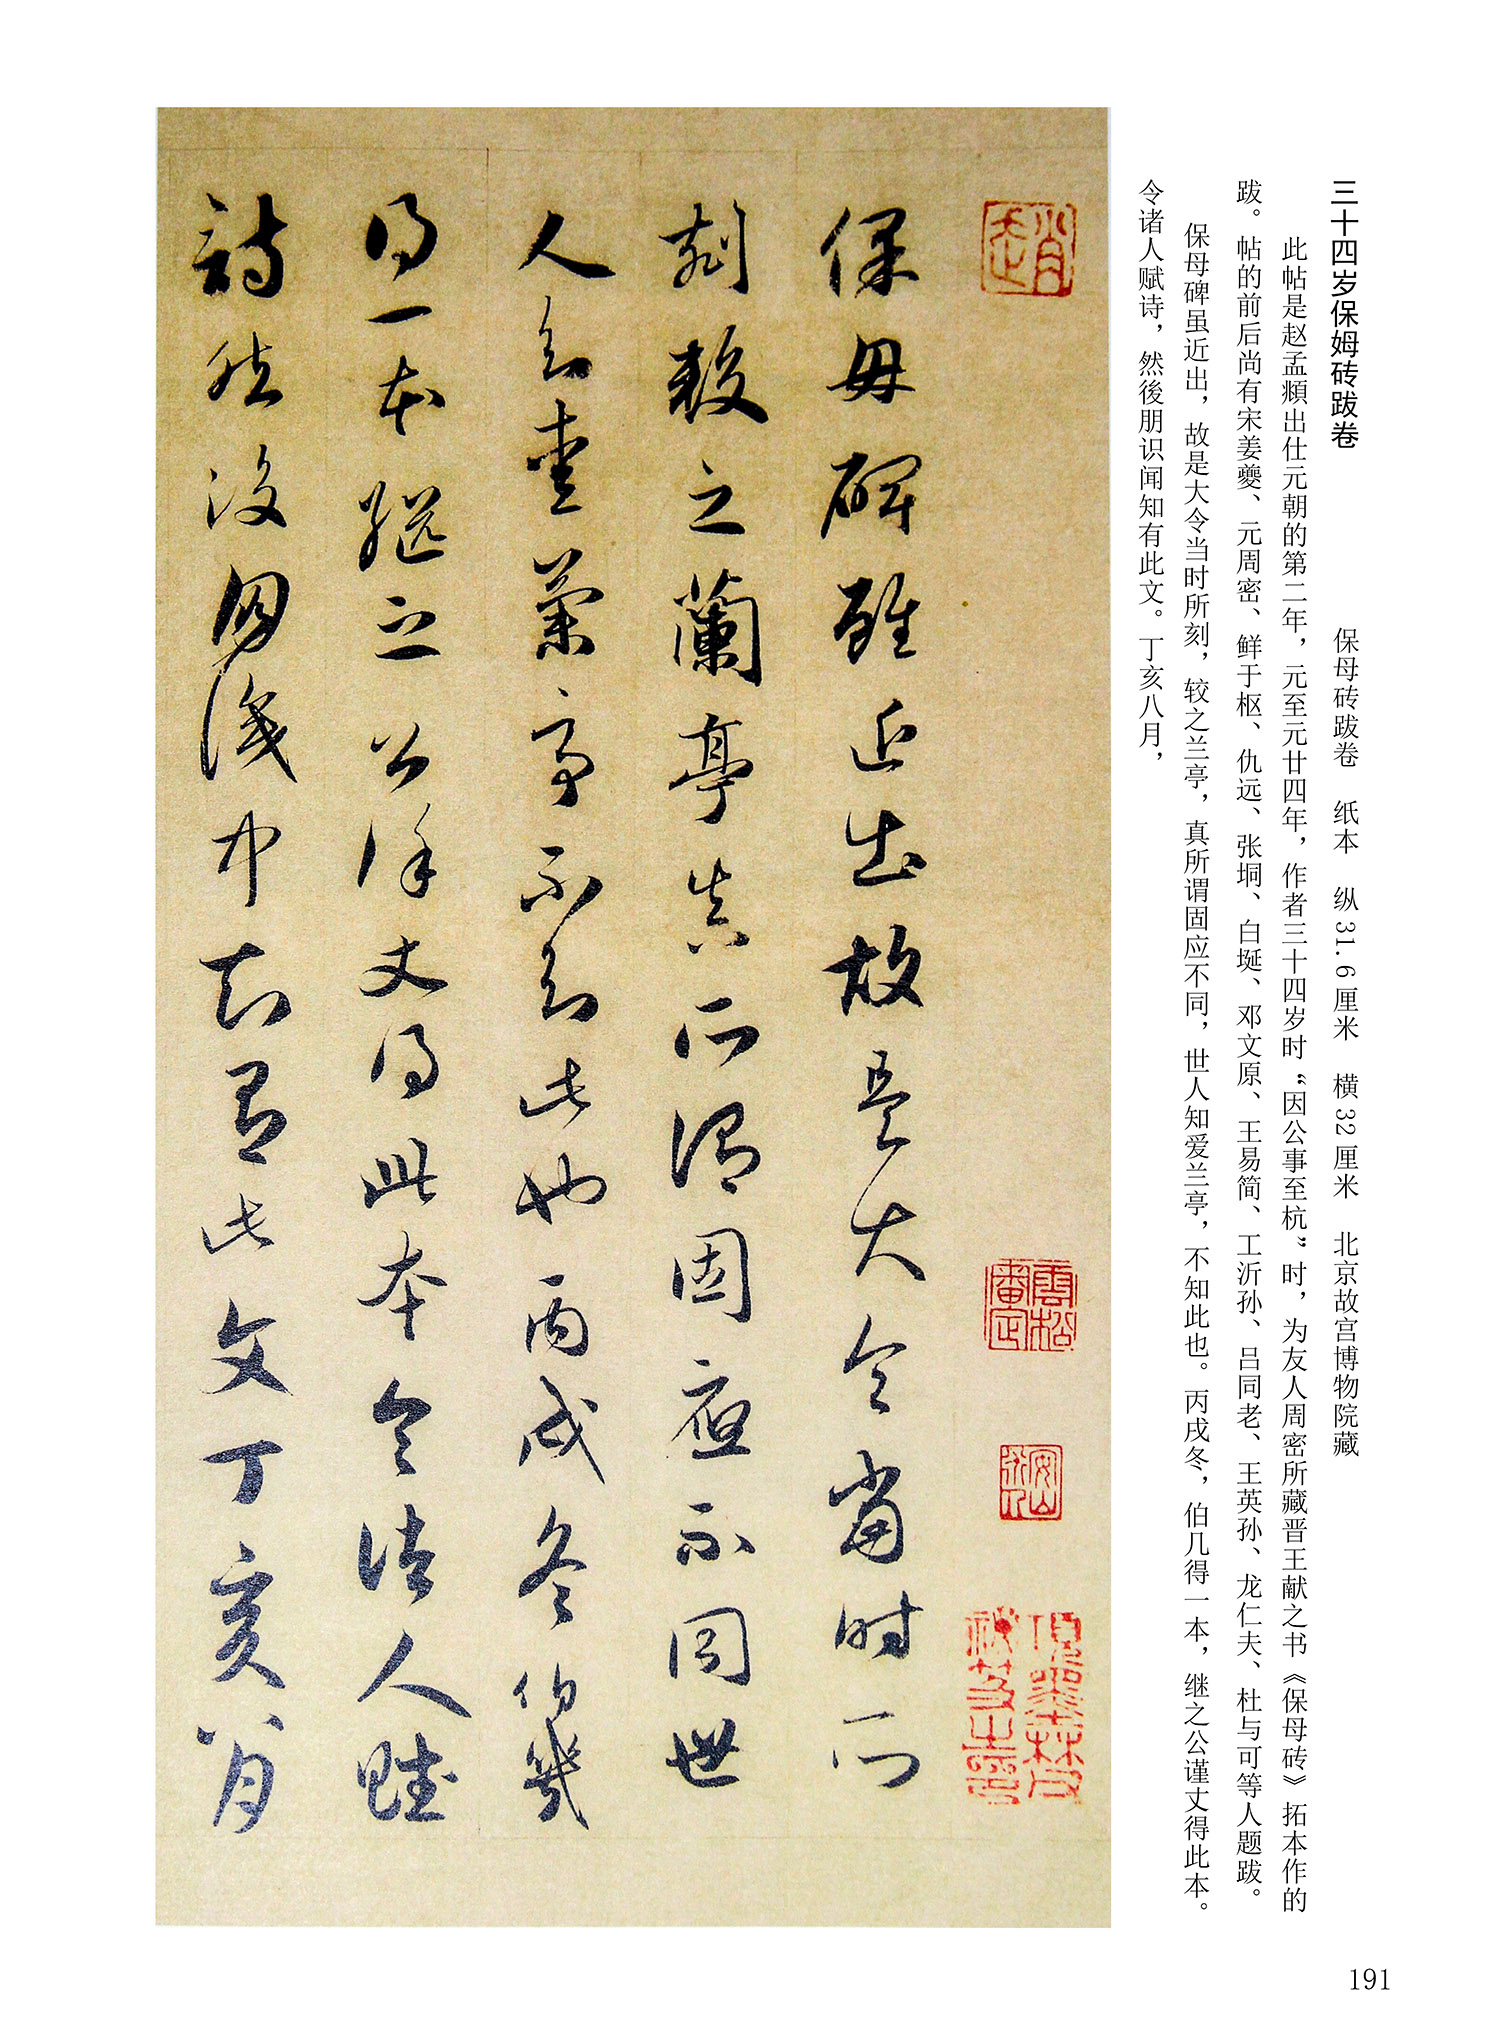 三十四岁保姆砖跋卷　保母砖跋卷　纸本　纵31.6厘米　横32厘米　北京故宫博物院藏
此帖是赵孟頫出仕元朝的第二年，元至元廿四年，作者三十四岁时“因公事至杭”时，为友人周密所藏晋王献之书《保母砖》拓本作的
跋。帖的前后尚有宋姜夔、元周密、鲜于枢、仇远、张坰、白埏、邓文原、王易简、工沂孙、吕同老、王英孙、龙仁夫、杜与可等人题跋。
保母碑虽近出，故是大令当时所刻，较之兰亭，真所谓固应不同，世人知爱兰亭，不知此也。丙戌冬，伯几得一本，继之公谨丈得此本。
令诸人赋诗，然後朋识闻知有此文。丁亥八月，
保母碑雖近出故是大令當時所
刻較之蘭亭真所謂固應不同世
人知愛蘭亭不知此也丙戌冬伯幾
得一本繼之公謹丈得此本令諸人賦
詩然後朋識中知有此文丁亥八月
趙
雲松審定
安
項墨林父祕笈之印
191